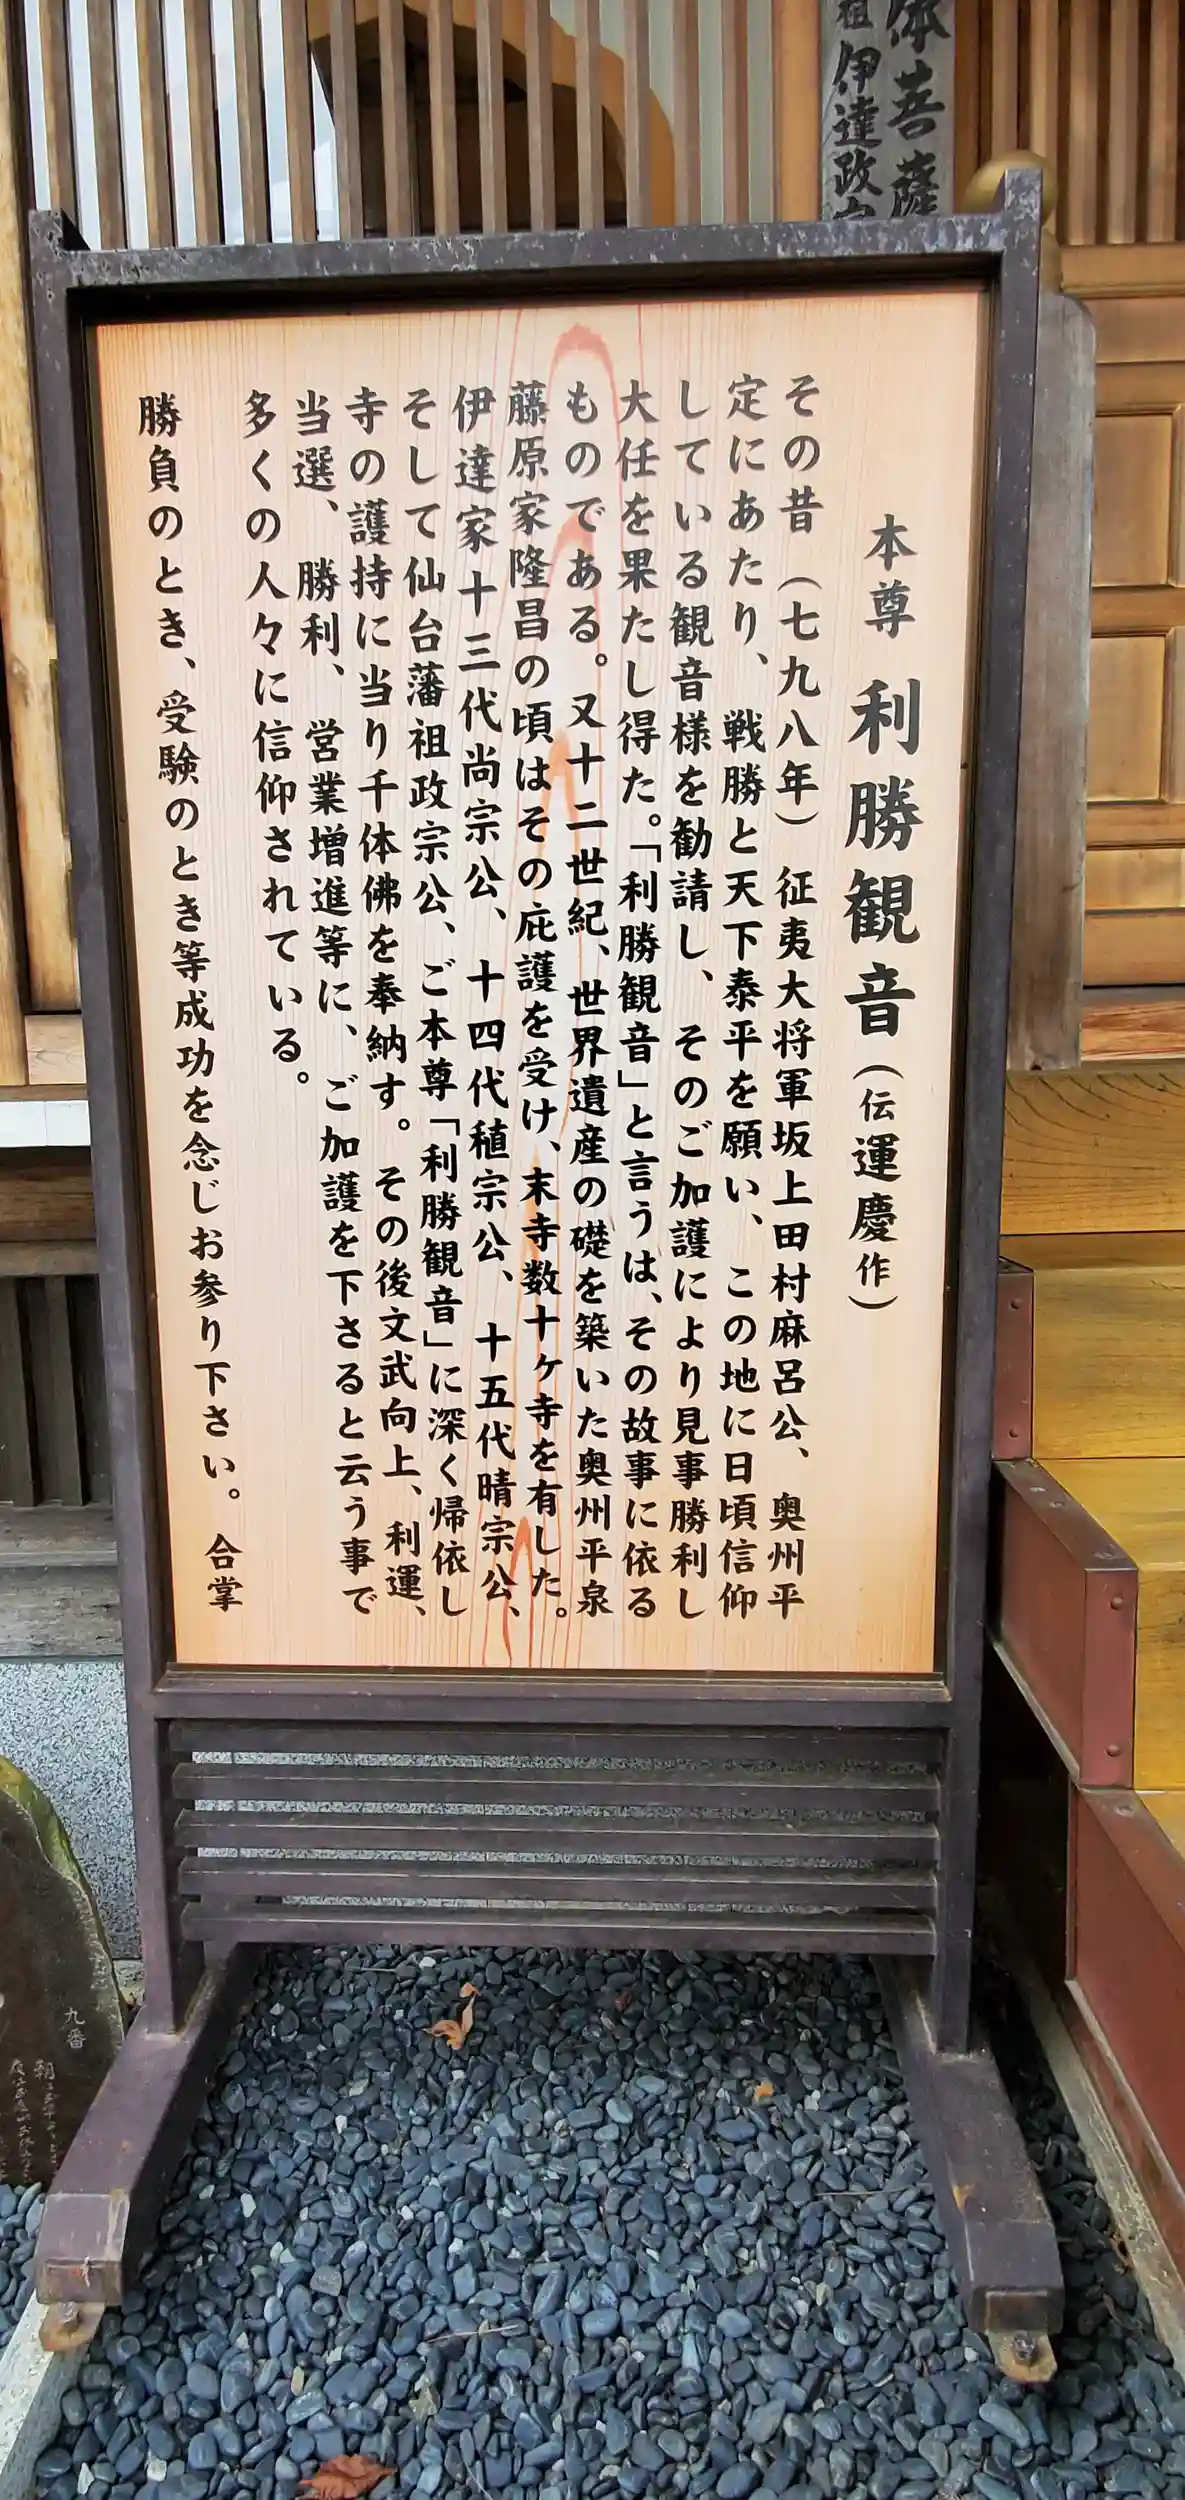 体菩薩
祖伊達政
本尊 利勝観音(伝運慶作)
その昔(七九八年)征夷大将軍坂上田村麻呂公、奥州平
定にあたり、戦勝と天下泰平を願い、この地に日頃信仰
している観音様を勧請し、そのご加護により見事勝利し
大任を果たし得た。「利勝観音」と言うは、その故事に依る
ものである。又十二世紀、世界遺産の礎を築いた奥州平泉
藤原家隆昌の頃はその庇護を受け、末寺数十ヶ寺を有した。
伊達家十三代尚宗公、十四代稙宗公、十五代晴宗公、
そして仙台藩祖政宗公、ご本尊「利勝観音」に深く帰依し
寺の護持に当り千体佛を奉納す。その後文武向上、利運、
当選、勝利、営業増進等に、ご加護を下さると云う事で
多くの人々に信仰されている。
勝負のとき、受験のとき等成功を念じお参り下さい。 合掌
九番